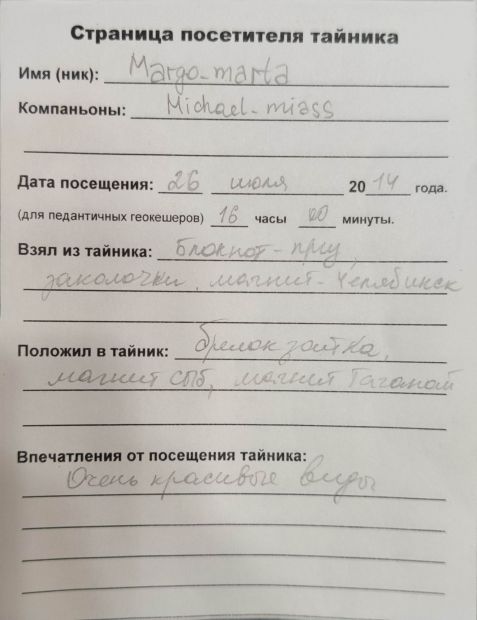 Страница посетителя тайника
Имя (ник): Margo-marta
Компаньоны: Michael-miass
Дата посещения: 26 июля 2014 года.
(для педантичных геокешеров) 16 часы 00 минуты.
Взял из тайника: Блокнот-
заколочки, магнит-Челябинск
Положил в тайник: брелок зайка,
магнит СПб, магнит Таганай
Впечатления от посещения тайника:
Очень красивые виды